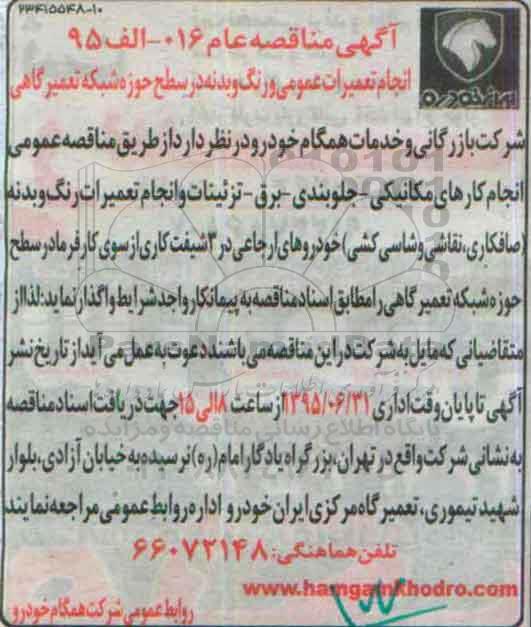 ۲۳۴۱۵۵۴۸-۱۰
ایران خودرو
آگهی مناقصه عام ۰۱۶-الف ۹۵
انجام تعمیرات عمومی و رنگ و بدنه در سطح حوزه شبکه تعمیرگاهی
شرکت بازرگانی و خدمات همگام خودرو در نظر دارد از طریق مناقصه عمومی
انجام کارهای مکانیکی - جلوبندی - برق - تزئینات و انجام تعمیرات رنگ و بدنه
(صافکاری، نقاشی و شاسی کشی) خودروهای ارجاعی در ۳ شیفت کاری از سوی کارفرما در سطح
حوزه شبکه تعمیرگاهی را مطابق اسناد مناقصه به پیمانکار واجد شرایط واگذار نماید؛ لذا از
متقاضیانی که مایل به شرکت در این مناقصه می باشند دعوت به عمل می آید از تاریخ نشر
آگهی تا پایان وقت اداری ۱۳۹۵/۰۶/۳۱ از ساعت ۸ الی ۱۵ جهت دریافت اسناد مناقصه
به نشانی شرکت واقع در تهران، بزرگراه یادگار امام (ره) نرسیده به خیابان آزادی، بلوار
شهید تیموری، تعمیرگاه مرکزی ایران خودرو اداره روابط عمومی مراجعه نمایند
تلفن هماهنگی: ۶۶۰۷۲۱۴۸
www.hamgamkhodro.com
روابط عمومی شرکت همگام خودرو